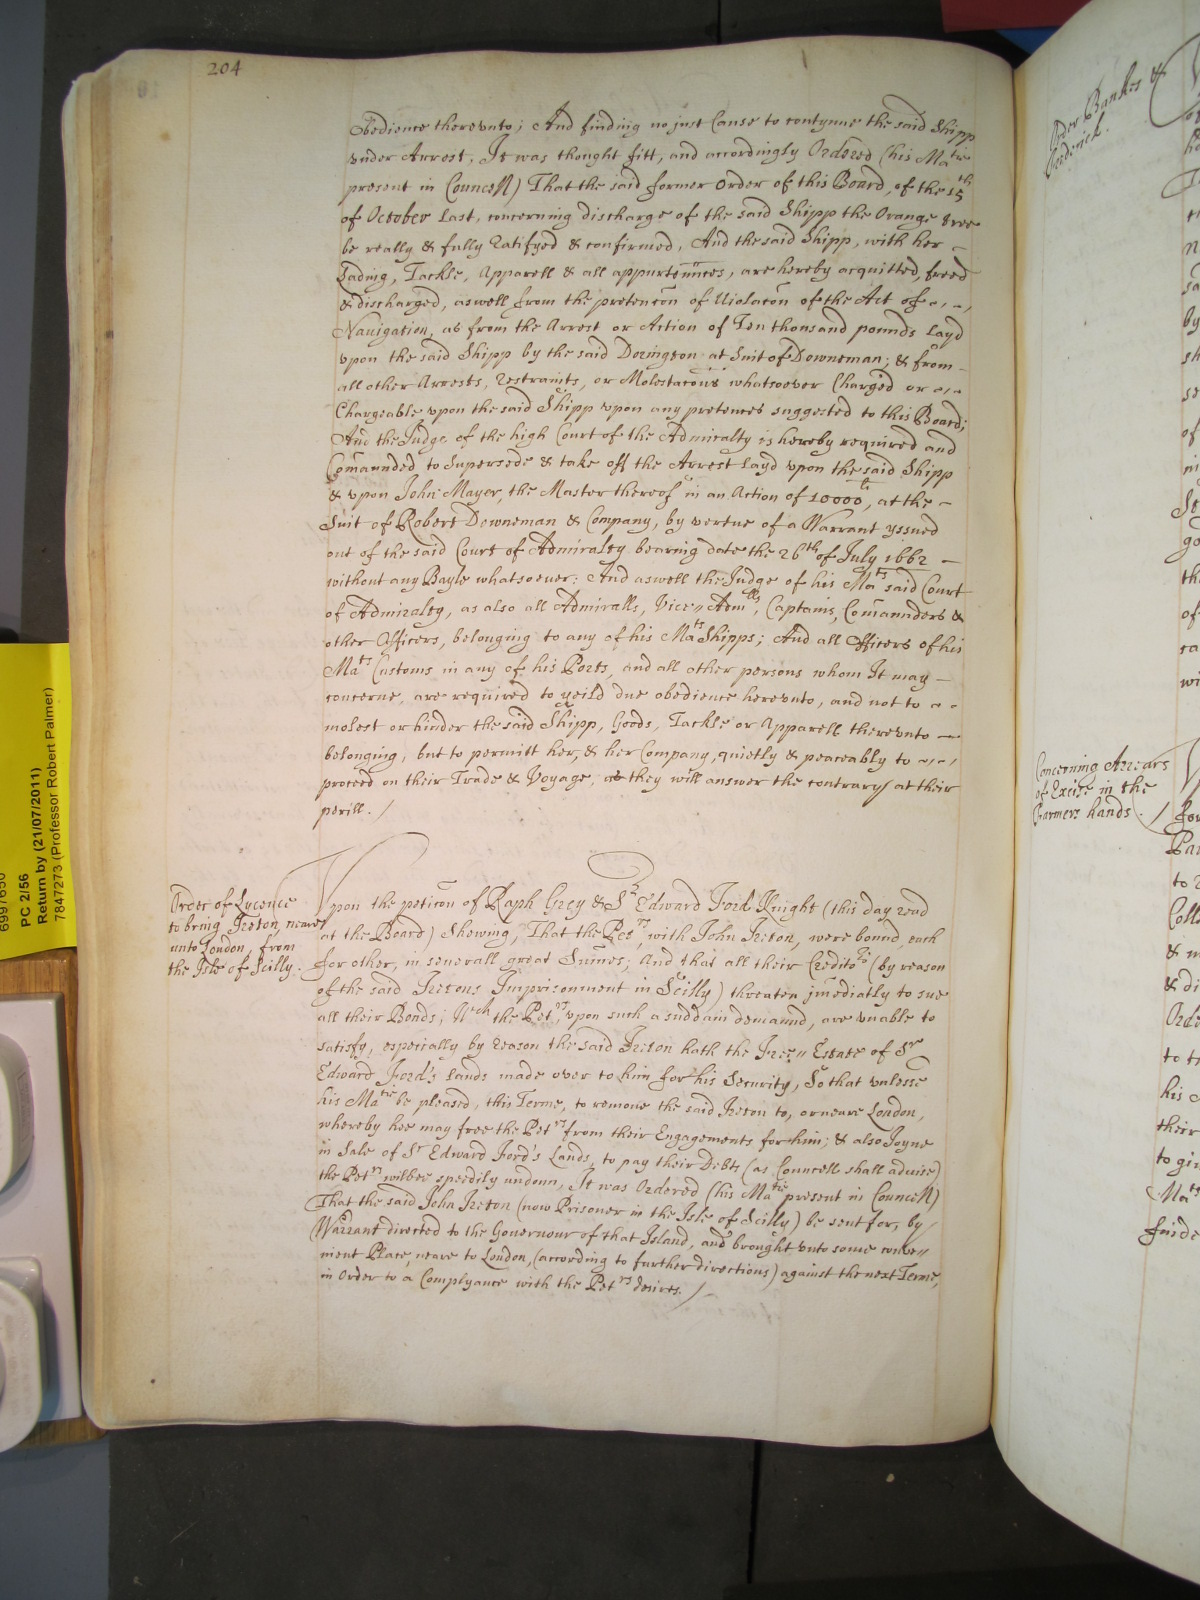 204
Obedience therevnto; And finding no just Cause to contynue the said Shipp
vnder Arrest, It was thought fitt, and accordingly Ordered (his Matie
present in Councell) That the said former Order of this Board, of the 15th
of October last, concerning discharge of the said Shipp the Orange tree
be really & fully Ratifyed & confirmed, And the said Shipp, with her
Lading, Tackle, Apparell & all appurtennces, are hereby acquitted, freed
& discharged, aswell from the pretencon of Violacon of the Act of
Navigation, as from the Arrest or Action of Ten thousand pounds layd
vpon the said Shipp by the said Dorington at Suit of Downeman; & from
all other Arrests, Restraints, or Molestacons whatsoever Charged or
Chargeable vpon the said Shipp vpon any pretences suggested to this Board;
And the Judge of the high Court of the Admiralty is hereby required and
Comannded to Supersede & take off the Arrest layd vpon the said Shipp
& vpon John Mayer, the Master thereof in an Action of 10000li, at the
Suit of Robert Downeman & Company, by vertue of a Warrant yssued
out of the said Court of Admiralty bearing date the 26th of July 1662
without any Bayle whatsoeuer; And aswell the Judge of his Mats said Court
of Admiralty, as also all Admiralls, Vice Admlls, Captains, Comannders &
other Officers, belonging to any of his Mats Shipps; And all Officers of his
Mats Customs in any of his Ports, and all other persons whom It may
concerne, are required to yeild due obedience herevnto, and not to
molest or hinder the said Shipp, Goods, Tackle or Apparell therevnto
belonging, but to permitt her, & her Company, quietly & peaceably to
proceed on their Trade & Voyage, as they will answer the contrary at their
perill. /
Order of Lycence
to bring Ireton neare
vnto London, from
the Isle of Scilly.
Vpon the peticon of Raph Grey & Sr Edward Ford Knight (this day read
at the Board) Shewing, That the Petrs, with John Ireton, were bound each
for other, in seuerall great Summes; And that all their Creditors (by reason
of the said Iretons Imprisonment in Scilly) threaten jmediatly to sue
all their Bonds; Wch the Petrs, vpon such a suddain demannd, are vnable to
satisfy, especially by reason the said Ireton hath the Estate of Sr
Edward Ford's Lands made over to him for his Security, So that vnlesse
his Matie be pleased, this Terme, to remove the said Ireton to, or neare London,
whereby hee may free the Petrs from their Engagements for him; & also Joyne
in Sale of Sr Edward Ford's Lands, to pay their Debts (as Councell shall aduise)
the Petrs wilbee speedily undonn, It was Ordered (his Matie present in Councell)
That the said John Ireton (now Prisoner in the Isle of Scilly) be sent for, by
Warrant directed to the Gouernour of that Island, and brought vnto some conve//
nient Place, neare to London, (according to further directions) against the next Terme,
in Order to a Complyance with the Petrs desires. /
Order Bankes &
Frederick.
Concerning Arrears
of Excise in the
Farmers hands. /
6997650
PC 2/56
Return by (21/07/2011)
7847273 (Professor Robert Palmer)